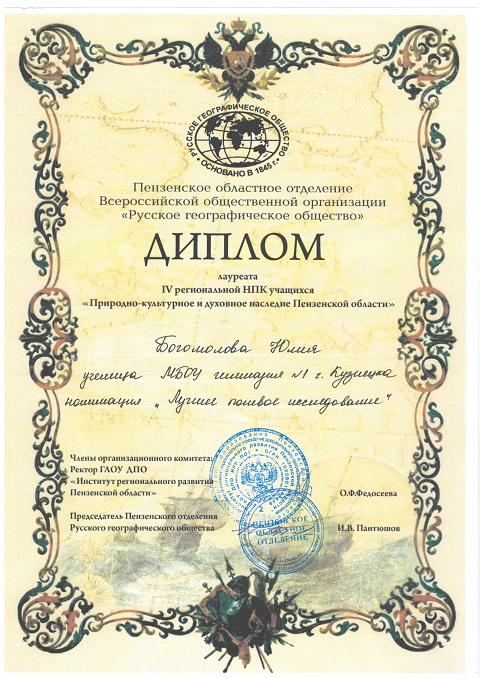 РУССКОЕ ГЕОГРАФИЧЕСКОЕ ОБЩЕСТВО
• ОСНОВАНО В 1845 г. •
Пензенское областное отделение
Всероссийской общественной организации
«Русское географическое общество»
ДИПЛОМ
лауреата
IV региональной НПК учащихся
«Природно-культурное и духовное наследие Пензенской области»
Богомолова Юлия
ученица МБОУ гимназия №1 г. Кузнецка
номинация „Лучшее полевое исследование“
Члены организационного комитета:
Ректор ГАОУ ДПО
«Институт регионального развития
Пензенской области»
О.Ф.Федосеева
Председатель Пензенского отделения
Русского географического общества
И.В. Пантюшов
ПЕНЗЕНСКОЕ
ОБЛАСТНОЕ
ОТДЕЛЕНИЕ